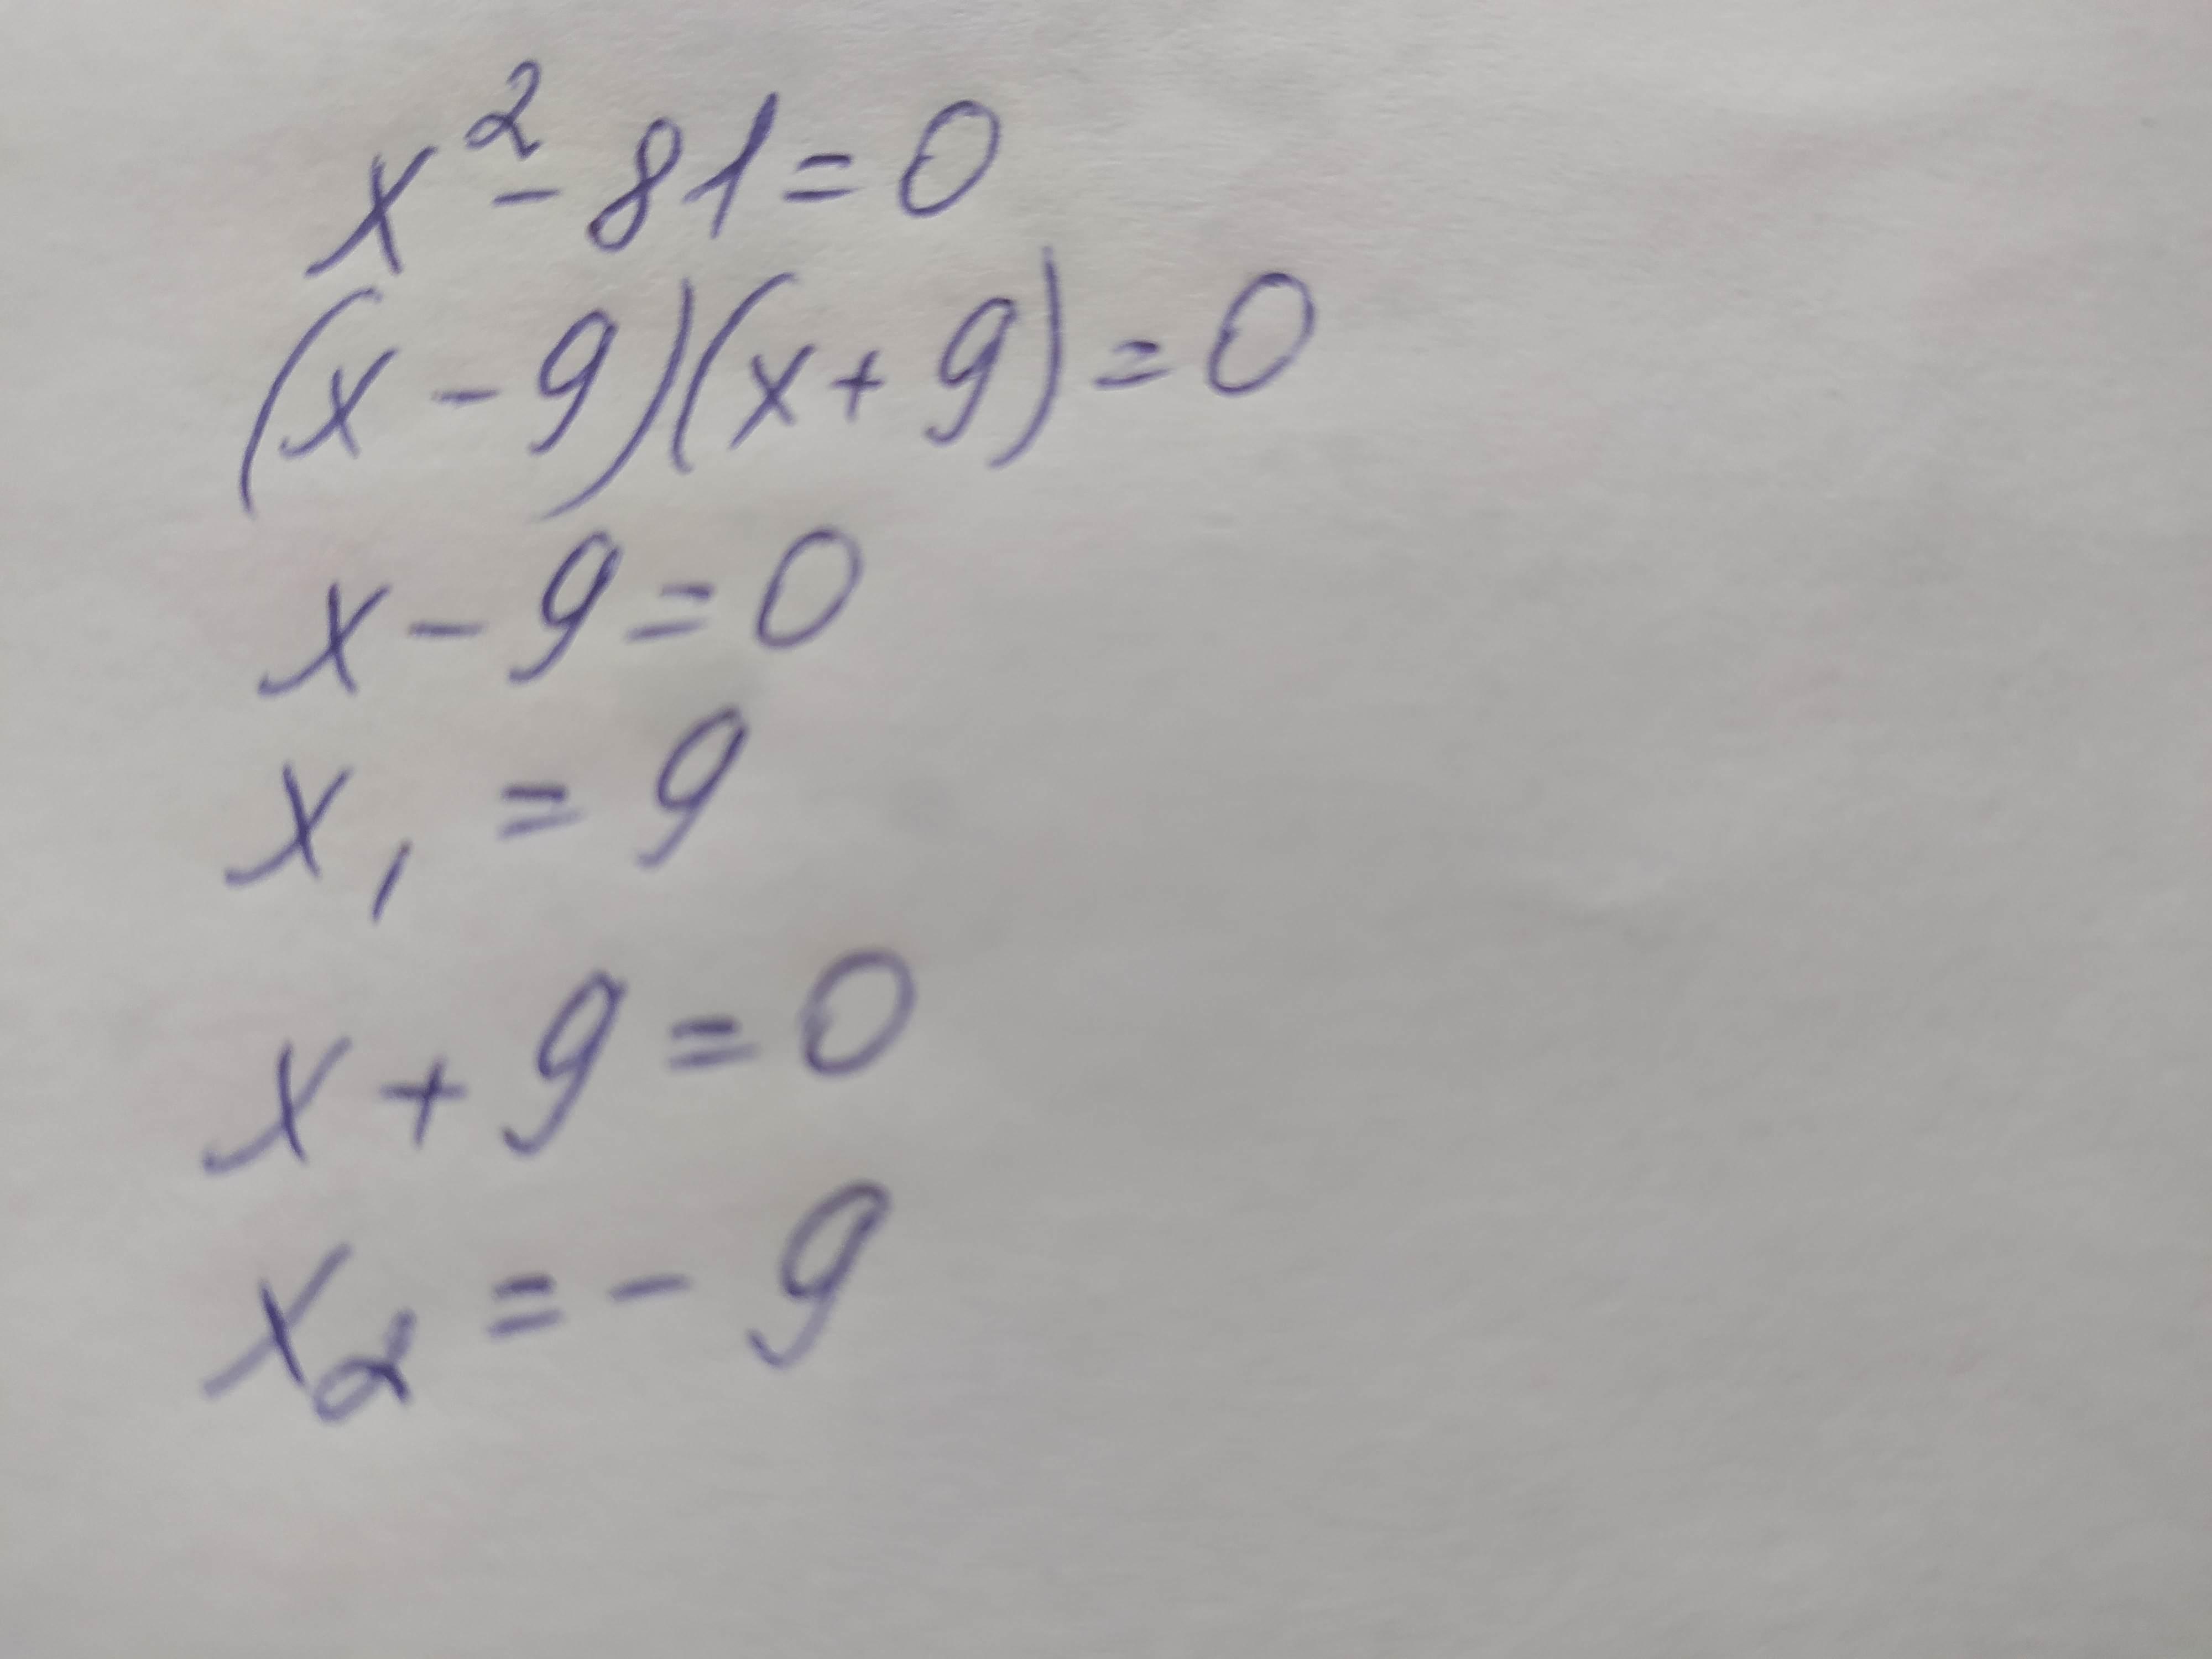 x² - 81 = 0
(x - 9)(x + 9) = 0
x - 9 = 0
x₁ = 9
x + 9 = 0
x₂ = - 9